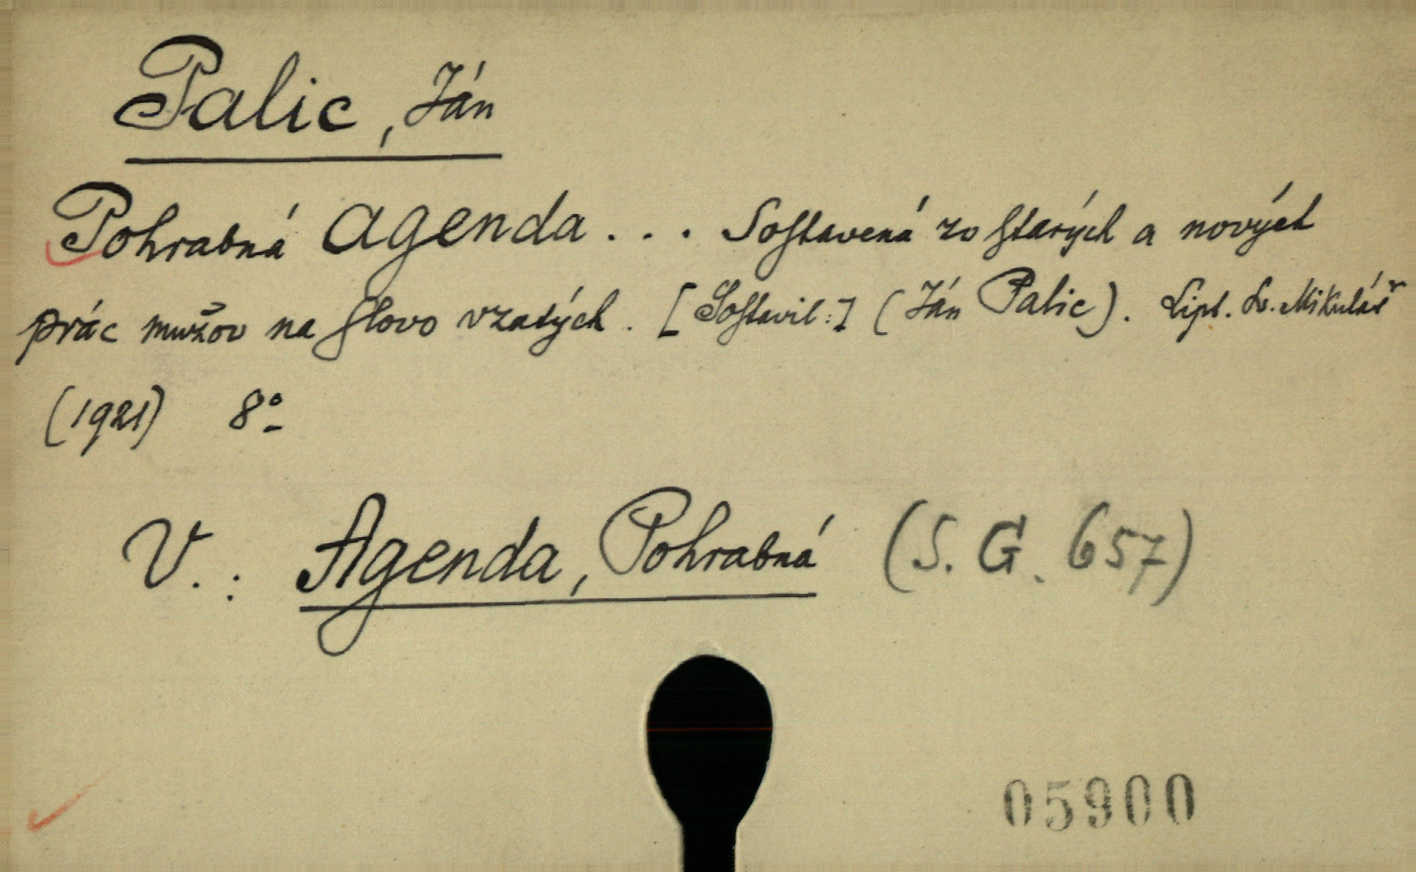 Palic, Ján
Pohrabná Agenda... Sostavená zo starých a nových
prác mužov na slovo vzatých. [Sostavil:] (Ján Palic). Lipt. Sv. Mikuláš
(1921) 8º
V.: Agenda, Pohrabná (S. G. 657)
05900